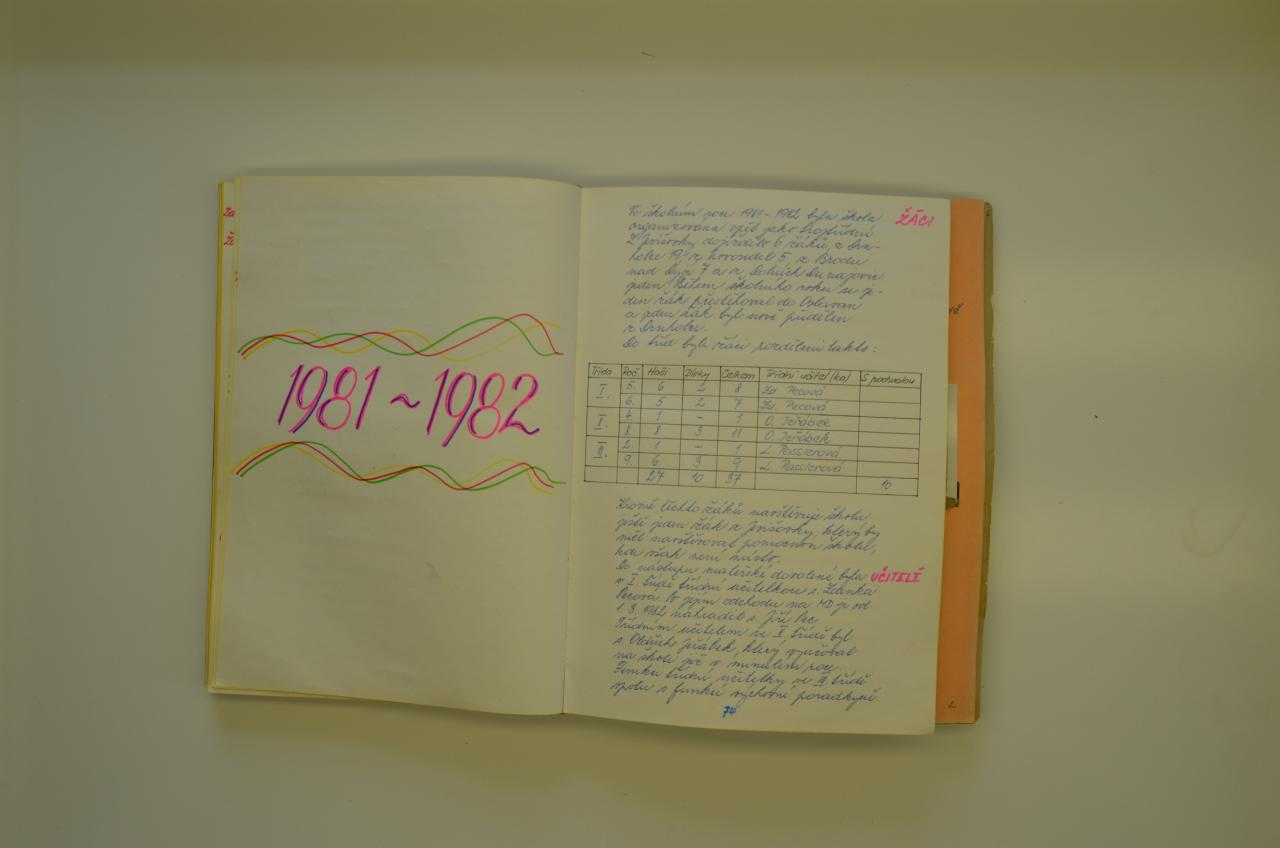 1981 ~ 1982
ŽÁCI
Ve školním roce 1981 - 1982 byla škola
organizována opět jako trojtřídní.
Z Jevišovky dojíždělo 6 žáků, z Drn-
holce 19, z Novosedel 5, z Brodu
nad Dyjí 7 a z Dolních Dunajovic
jeden. Během školního roku se je-
den žák přestěhoval do Oslavan
a jeden žák byl nově přidělen
z Drnholce.
Do tříd byli žáci rozděleni takto:
Třída Roč. Hoši Dívky Celkem Třídní učitel (ka) S pochvalou
I. 5. 6 2 8 Zd. Pecová
6. 5 2 7 Zd. Pecová
II. 4. 1 - 1 O. Jeřábek
8. 8 3 11 O. Jeřábek
III. 2. 1 - 1 L. Rasslerová
9. 6 3 9 L. Rasslerová
27 10 37 10
Kromě těchto žáků navštěvuje školu
ještě jeden žák z Jevišovky, který by
měl navštěvovat pomocnou školu,
kde však není místo.
UČITELÉ
Do nástupu mateřské dovolené byla
v I. třídě třídní učitelkou s. Zdenka
Pecová. Po jejím odchodu na MD ji od
1. 3. 1982 nahradil s. Jiří Pec
Třídním učitelem ve II. třídě byl
s. Oldřich Jeřábek, který vyučoval
na škole již v minulém roce.
Funkci třídní učitelky ve III. třídě
spolu s funkcí výchovné poradkyně
74